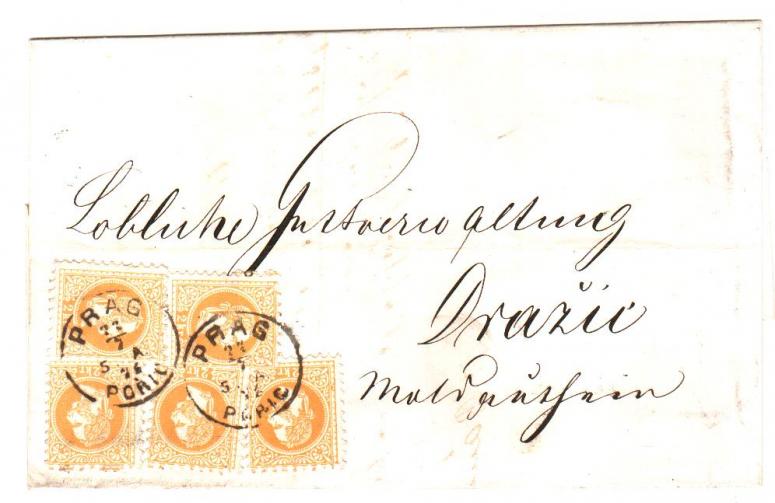 Löbliche Gutsverwaltung
Dražic
Moldauthein
PRAG
PORIC
PRAG
PORIC